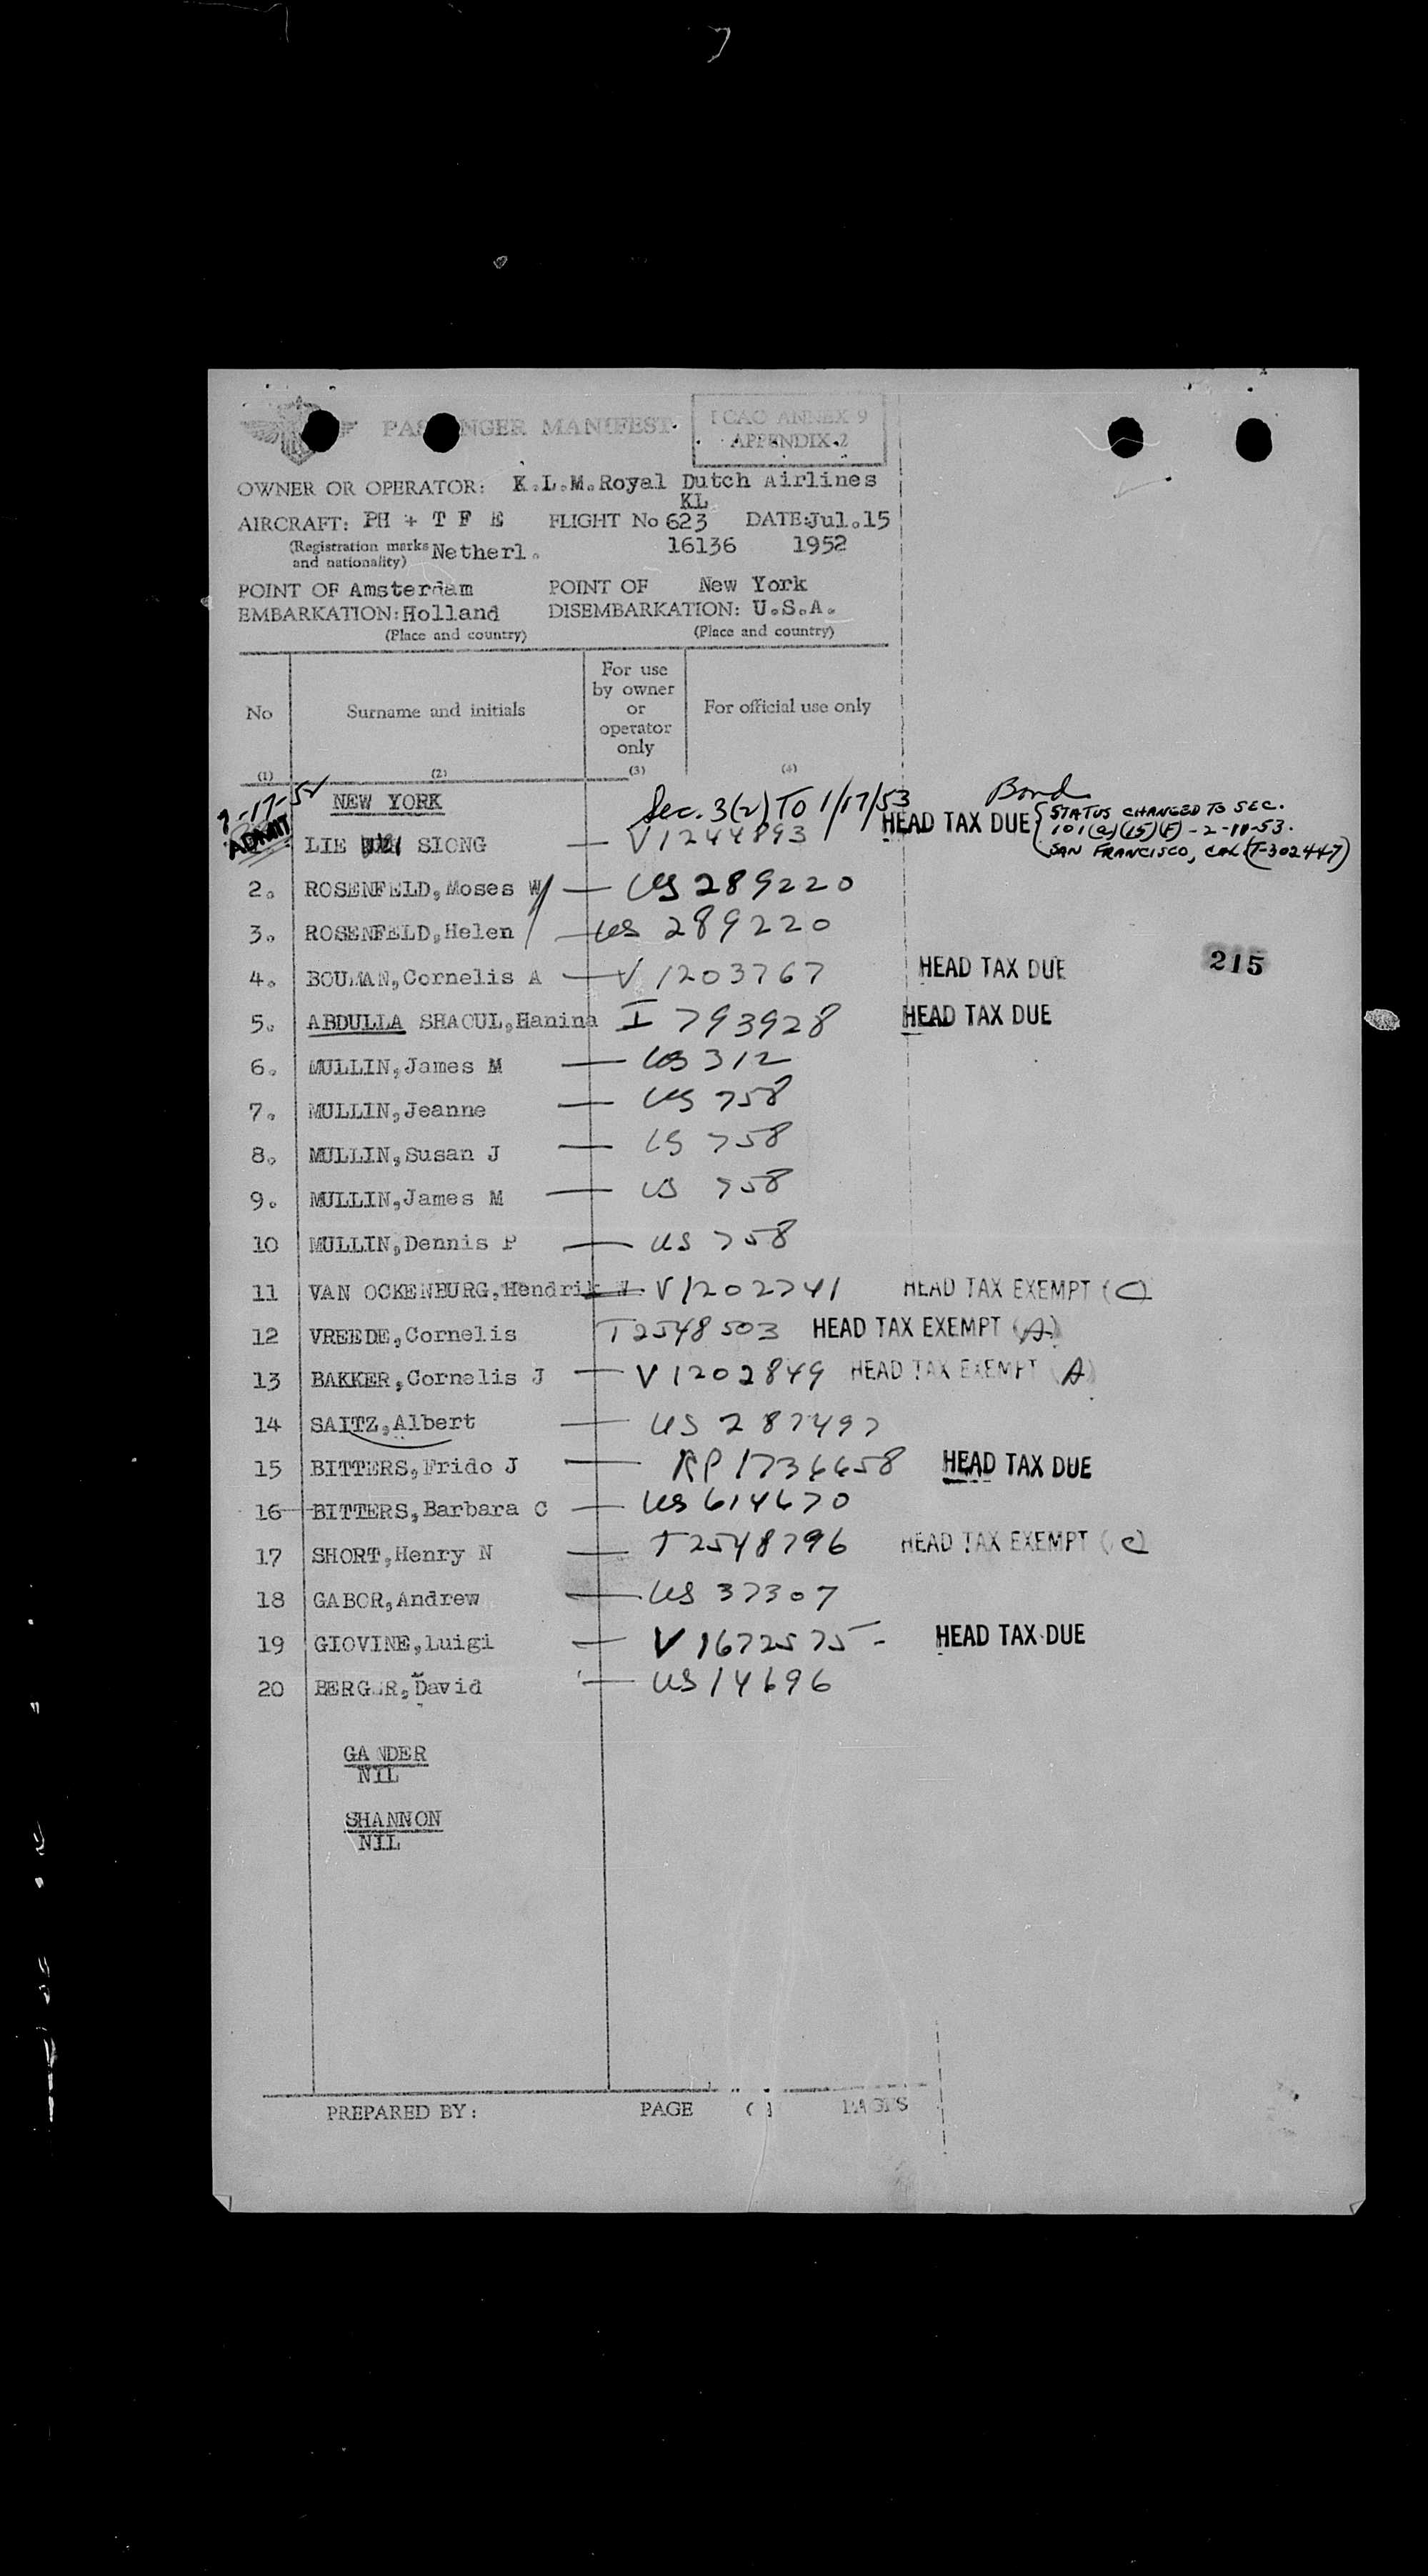 PASSENGER MANIFEST
ICAO ANNEX 9
APPENDIX 2
OWNER OR OPERATOR: K.L.M. Royal Dutch Airlines
KL
AIRCRAFT: PH + T F E FLIGHT No 623 DATE: Jul.15
(Registration marks and nationality) Netherl. 16136 1952
POINT OF Amsterdam POINT OF New York
EMBARKATION: Holland DISEMBARKATION: U.S.A.
(Place and country) (Place and country)
No Surname and initials For use by owner or operator only For official use only
(1) (2) (3) (4)
7-17-52 NEW YORK Sec. 3(2) TO 1/17/53 Bond
ADMIT LIE SIONG V1244893 HEAD TAX DUE STATUS CHANGED TO SEC.
101(a)(15)(F) - 2-11-53.
SAN FRANCISCO, CAL (T-302447)
2. ROSENFELD, Moses W US 289220
3. ROSENFELD, Helen US 289220
4. BOUMAN, Cornelis A V 1203767 HEAD TAX DUE 215
5. ABDULLA SHAOUL, Hanina I 793928 HEAD TAX DUE
6. MULLIN, James M US 312
7. MULLIN, Jeanne US 758
8. MULLIN, Susan J US 758
9. MULLIN, James M US 758
10 MULLIN, Dennis P US 758
11 VAN OCKENBURG, Hendrik W V1202741 HEAD TAX EXEMPT (C)
12 VREEDE, Cornelis T2548503 HEAD TAX EXEMPT (A)
13 BAKKER, Cornelis J V 1202849 HEAD TAX EXEMPT (A)
14 SAITZ, Albert US 287497
15 BITTERS, Frido J RP 1736658 HEAD TAX DUE
16 BITTERS, Barbara C US 614670
17 SHORT, Henry N T2548796 HEAD TAX EXEMPT (C)
18 GABOR, Andrew US 37307
19 GIOVINE, Luigi V 1672575 - HEAD TAX DUE
20 BERGER, David US 14696
GANDER
NIL
SHANNON
NIL
PREPARED BY: PAGE ( ) PAGES